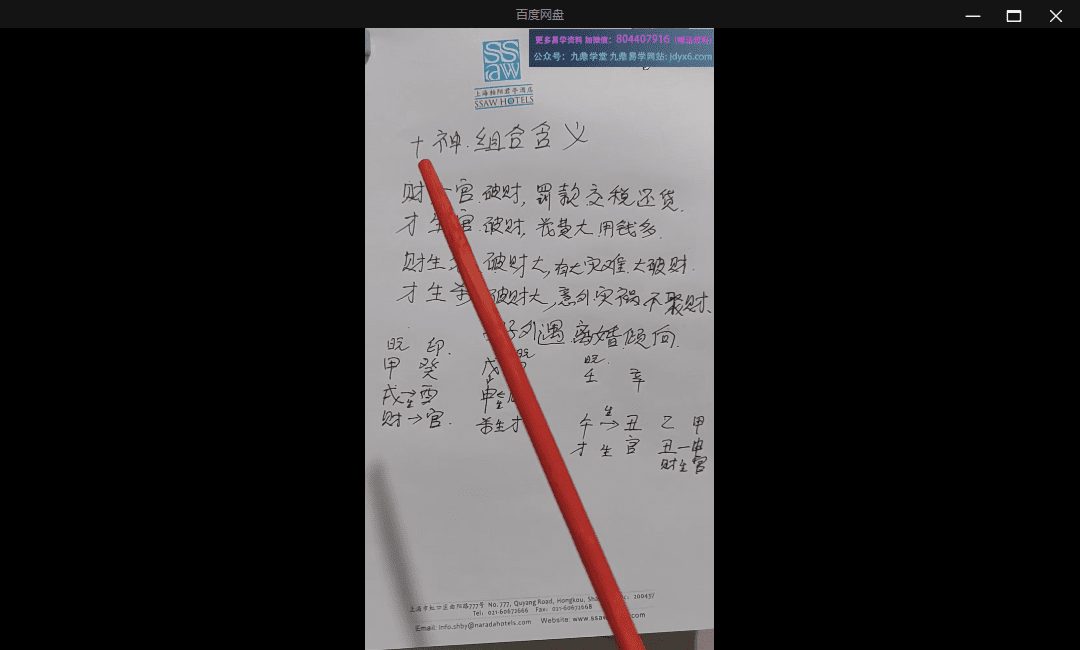 百度网盘
更多易学资料 加微信：804407916
公众号：九鼎学堂 九鼎易学网站：jdyx6.com
SSAW
SSAW HOTELS
十神.组合含义
财 官.破财,罚款交税还货.
才生官.破财,花费大.用钱多.
财生 破财大,有大灾难.大破财.
才生杀 破财大,意外灾祸 不聚财.
外遇.离婚倾向.
印.
甲 癸
戊 酉
生
财→官.
戊
申
生
杀生才
壬 辛
午 生→ 丑 乙 甲
才 生 官 丑—申
财生官
上海市虹口区曲阳路777号 No. 777, Quyang Road, Hongkou, 200437
Tel: 021-60672666 Fax: 021-60672668
Email: info.shby@naradahotels.com Website: www.ssaw